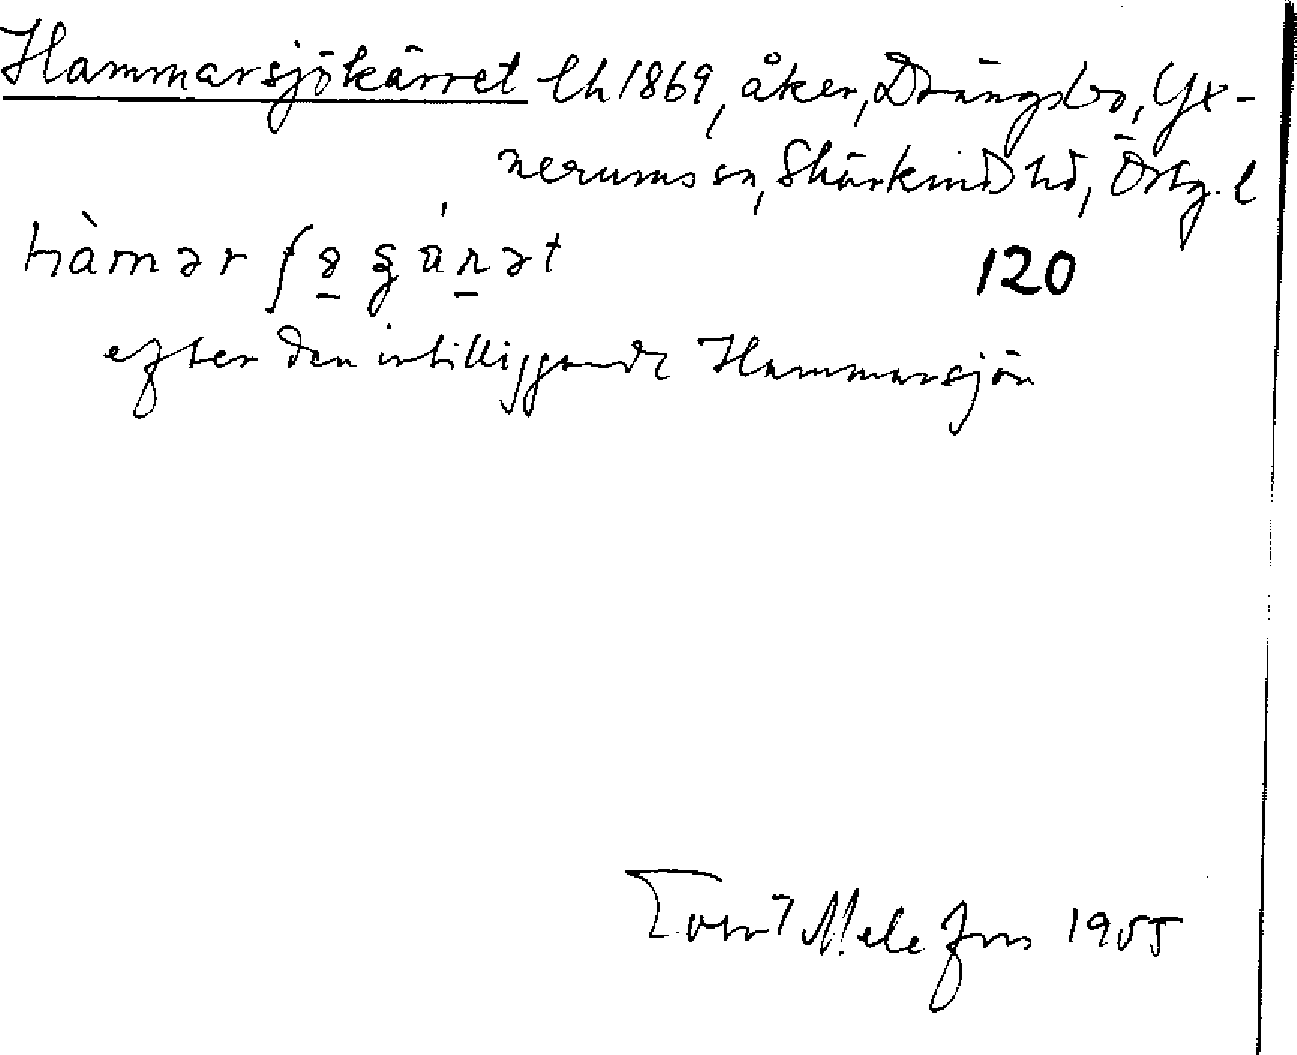 Hammarsjökärret lh 1869, åker, Drängsbo, Yx-
nerums sn, Skärkinds hd, Östg. l
hàmər ʃɵ̠ ɕá̈r̠ət
120
efter den intilliggande Hammarsjön
1955